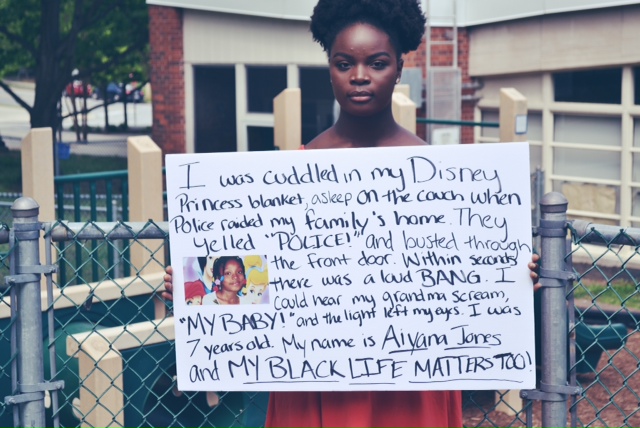 I was cuddled in my Disney
Princess blanket, asleep on the couch when
Police raided my family's home. They
yelled "POLICE!" and busted through
the front door. Within seconds
there was a loud BANG. I
could hear my grandma scream,
"MY BABY!" and the light left my eyes. I was
7 years old. My name is Aiyana Jones
and MY BLACK LIFE MATTERS TOO!